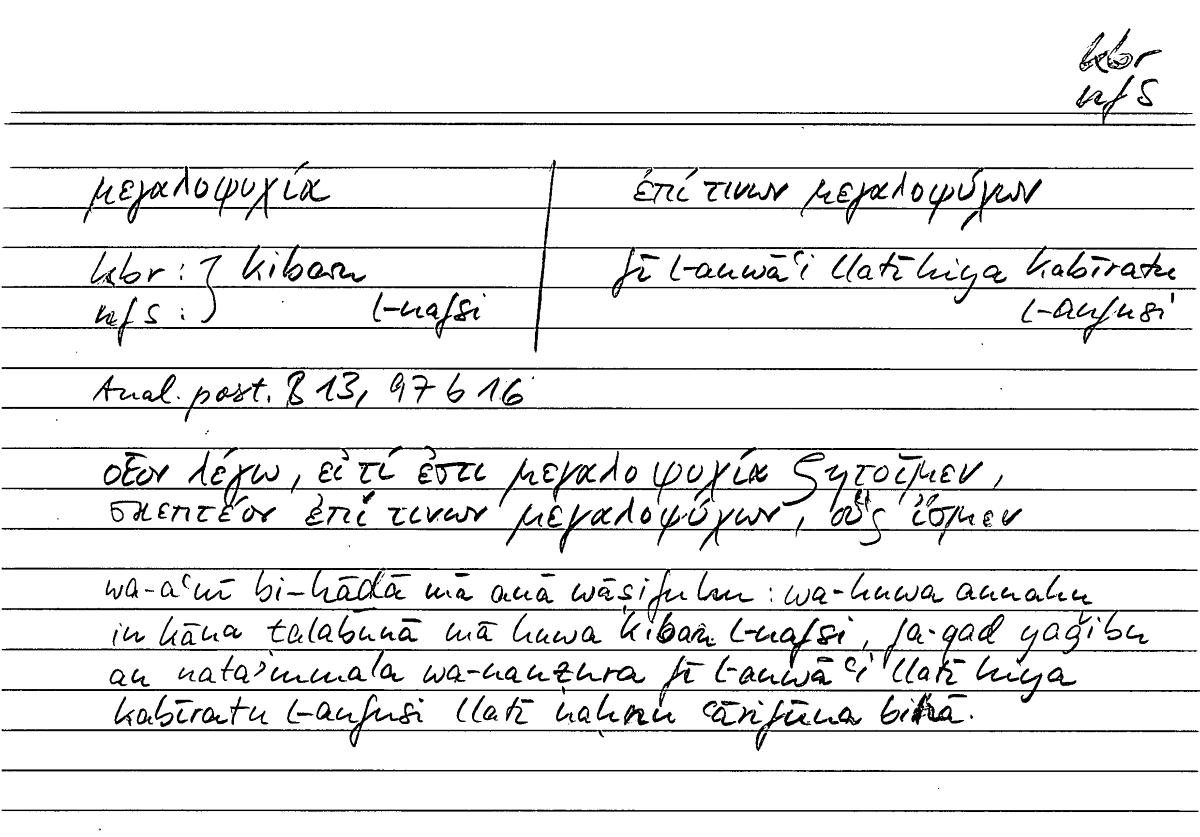 kbr
nfs
μεγαλοψυχία
kbr : } kibaru
nfs : } l-nafsi
ἐπί τινων μεγαλοψύχων
fī l-anwāʿi llatī hiya kabīratu
l-anfusi
Anal. post. B 13, 97 b 16
οἷον λέγω, εἰ τί ἐστι μεγαλοψυχία ζητοῖμεν,
σκεπτέον ἐπί τινων μεγαλοψύχων, οὓς ἴσμεν
wa-aʿnī bi-hāḏā mā anā wāṣifuhu : wa-huwa annahu
in kāna ṭalabunā mā huwa kibaru l-nafsi, fa-qad yaǧibu
an nataʾammala wa-nanẓura fī l-anwāʿi llatī hiya
kabīratu l-anfusi llatī naḥnu ʿārifūna bihā.